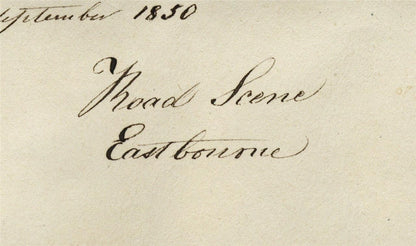 September 1850
Road Scene
Eastbourne